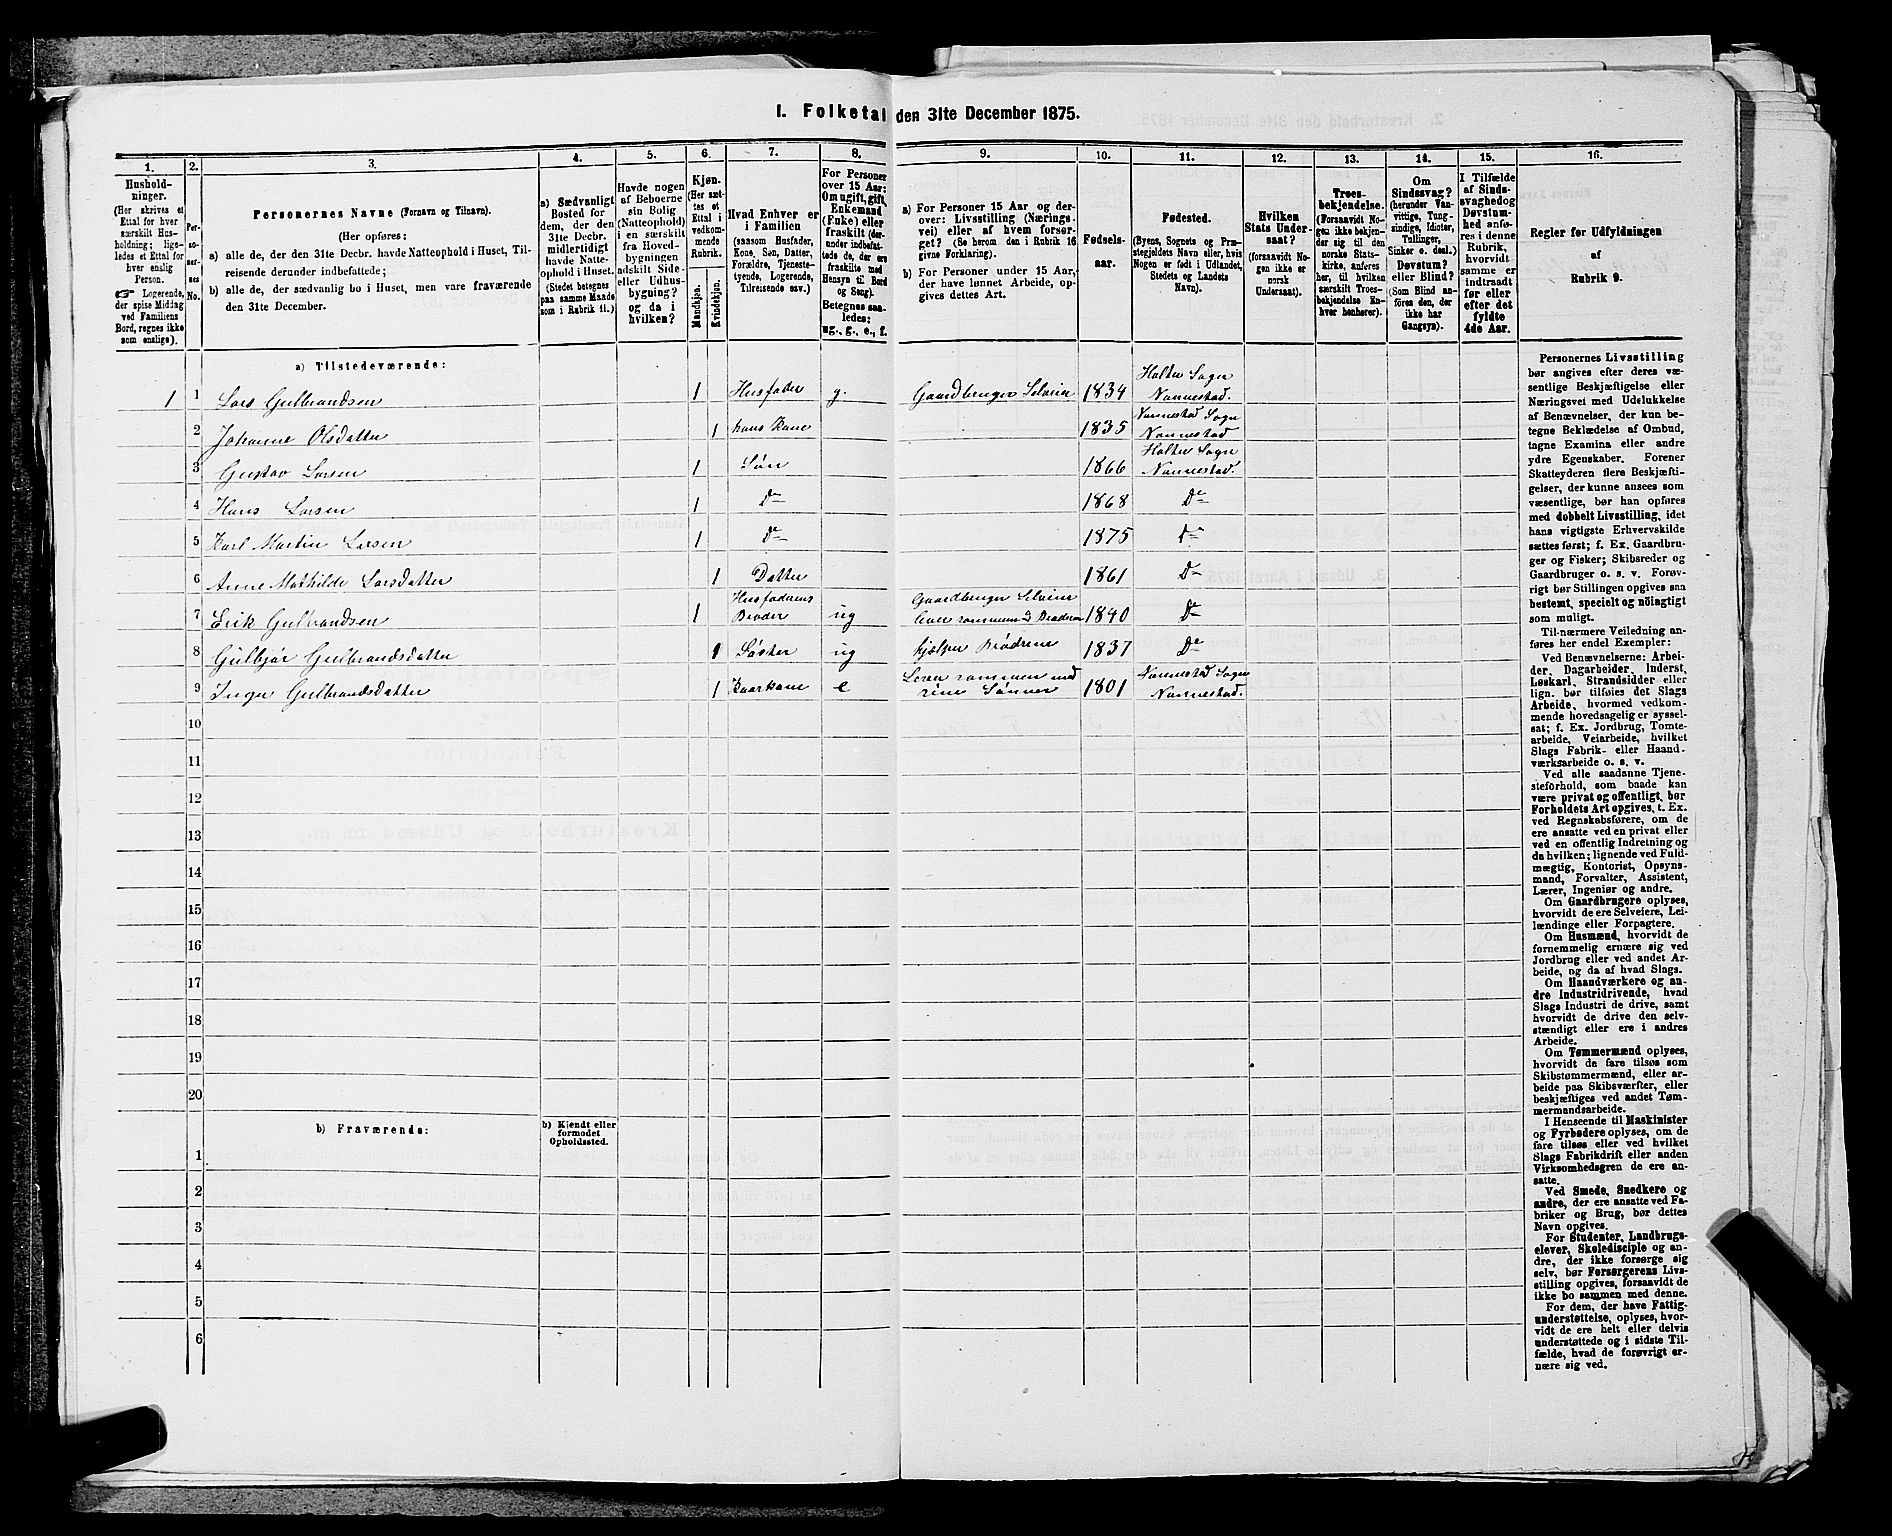 I. Folketal den 31te December 1875.
1. 2. 3. 4. 5. 6. 7. 8. 9. 10. 11. 12. 13. 14. 15. 16.
Hushold-
ninger.
(Her skrives et
Ettal for hver
særskilt Hus-
holdning; lige-
ledes et Ettal for
hver enslig
Person.
☞ Logerende,
der spise Middag
ved Familiens
Bord, regnes ikke
som enslige).
Per-
so-
ner-
nes
No.
Personernes Navne (Fornavn og Tilnavn).
(Her opføres:
a) alle de, der den 31te Decbr. havde Natteophold i Huset, Til-
reisende derunder indbefattede;
b) alle de, der sædvanlig bo i Huset, men vare fraværende
den 31te December.
a) Sædvanligt
Bosted for
dem, der den
31te Decbr.
midlertidigt
havde Natte-
ophold i Huset.
(Stedet betegnes
paa samme Maade
som i Rubrik 11.)
Havde nogen
af Beboerne
sin Bolig
(Natteophold)
i en særskilt
fra Hoved-
bygningen
adskilt Side-
eller Udhus-
bygning?
og da i
hvilken?
Kjøn.
(Her sæt-
tes et
Ettal i
vedkom-
mende
Rubrik.
Mandkjøn.
Kvindekjøn.
Hvad Enhver er
i Familien
(saasom Husfader,
Kone, Søn, Datter,
Forældre, Tjeneste-
tyende, Logerende,
Tilreisende osv.)
For Personer
over 15 Aar:
Om ugift, gift,
Enkemand
(Enke) eller
fraskilt (der-
under indbefat-
tede de, der ere
fraskilte med
Hensyn til Bord
og Seng).
Betegnes saa-
ledes:
ug., g., e., f.
a) For Personer 15 Aar og der-
over: Livsstilling (Nærings-
vei) eller af hvem forsør-
get? (Se herom den i Rubrik 16
givne Forklaring).
b) For Personer under 15 Aar,
der have lønnet Arbeide, op-
gives dettes Art.
Fødsels-
aar.
Fødested.
(Byens, Sognets og Præ-
stegjeldets Navn eller, hvis
Nogen er født i Udlandet,
Stedets og Landets
Navn).
Hvilken
Stats Under-
saat?
(forsaavidt No-
gen ikke er
norsk
Undersaat).
Troes-
bekjendelse.
(Forsaavidt No-
gen ikke bekjen-
der sig til den
norske Stats-
kirke, anføres
her, til hvilken
særskilt Troes-
bekjendelse En-
hver henhører).
Om
Sindssvag?
(herunder Van-
vittige, Tung-
sindige, Idioter,
Tullinger,
Sinker o. desl.).
Døvstum?
eller Blind?
(Som Blind an-
føres den, der
ikke har
Gangsyn).
I Tilfælde
af Sinds-
svaghed og
Døvstum-
hed anfø-
res i denne
Rubrik,
hvorvidt
samme er
indtraadt
før eller
efter det
fyldte
4de Aar.
Regler for Udfyldningen
af
Rubrik 9.
a) Tilstedeværende:
1 1 Lars Gulbrandsen 1 Husfader g. Gaardbruger Selveier 1834 Holter Sogn Nannestad.
2 Johanne Olsdatter 1 hans Kone 1835 Nannestad Sogn Nannestad
3 Gustav Larsen 1 Søn 1866 Holter Sogn Nannestad.
4 Hans Larsen 1 Do 1868 Do
5 Karl Martin Larsen 1 Do 1875 Do
6 Anne Mathilde Larsdatter 1 Datter 1861 Do
7 Erik Gulbrandsen 1 Husfaderens Broder ug Gaardbruger Selveier 1840 Do
8 Gulbjør Gulbrandsdatter 1 Søster ug hjælper Brødrene 1837 De
9 Inger Gulbrandsdatter 1 Kaarkone e Lever sammen med sine Sønner 1801 Nannestad Sogn Nannestad.
10
11
12
13
14
15
16
17
18
19
20
b) Fraværende:
b) Kjendt eller
formodet
Opholdssted.
1
2
3
4
5
6
Personernes Livsstilling
bør angives efter deres væ-
sentlige Beskjæftigelse eller
Næringsvei med Udelukkelse
af Benævnelser, der kun be-
tegne Beklædelse af Ombud,
tagne Examina eller andre
ydre Egenskaber. Forener
Skatteyderen flere Beskjæfti-
gelser, der kunne ansees som
væsentlige, bør han opføres
med dobbelt Livsstilling, idet
hans vigtigste Erhvervskilde
sættes først; f. Ex. Gaardbru-
ger og Fisker; Skibsreder og
Gaardbruger o. s. v. Forøv-
rigt bør Stillingen opgives saa
bestemt, specielt og nöiagtigt
som muligt.
Til nærmere Veiledning an-
føres her endel Exempler:
Ved Benævnelserne: Arbei-
der, Dagarbeider, Inderst,
Løskarl, Strandsidder eller
lign. bør tilføies det Slags
Arbeide, hvormed vedkom-
mende hovedsagelig er syssel-
sat; f. Ex. Jordbrug, Tomte-
arbeide, Veiarbeide, hvilket
Slags Fabrik- eller Haand-
værksarbeide o. s. v.
Ved alle saadanne Tjene-
steforhold, som baade kan
være privat og offentligt, bør
Forholdets Art opgives, t. Ex.
ved Regnskabsførere, om de
ere ansatte ved en privat eller
ved en offentlig Indretning og
da hvilken; lignende ved Fuld-
mægtig, Kontorist, Opsyns-
mand, Forvalter, Assistent,
Lærer, Ingeniør og andre.
Om Gaardbrugere oplyses,
hvorvidt de ere Selveiere, Lei-
lændinge eller Forpagtere.
Om Husmænd, hvorvidt de
fornemmelig ernære sig ved
Jordbrug eller ved andet Ar-
beide, og da af hvad Slags.
Om Haandværkere og an-
dre Industridrivende, hvad
Slags Industri de drive, samt
hvorvidt de drive den selv-
stændigt eller ere i andres
Arbeide.
Om Tømmermænd oplyses,
hvorvidt de fare tilsøs som
Skibstømmermænd, eller ar-
beide paa Skibsværfter, eller
beskjæftiges ved andet Tøm-
mermandsarbeide.
I Henseende til Maskinister
og Fyrbødere oplyses, om de
fare tilsøs eller ved hvilket
Slags Fabrikdrift eller anden
Virksomhedsgren de ere an-
satte.
Ved Smede, Snedkere og
andre, der ere ansatte ved Fa-
briker og Brug, bør dettes
Navn opgives.
For Studenter, Landbrugs-
elever, Skoledisciple og an-
dre, der ikke forsørge sig
selv, bør Forsørgerens Livs-
stilling opgives, forsaavidt de
ikke bo sammen med denne.
For dem, der have Fattig-
understøttelse, oplyses, hvor-
vidt de ere helt eller delvis
understøttede og i sidste Til-
fælde, hvad de forøvrigt er-
nære sig ved.